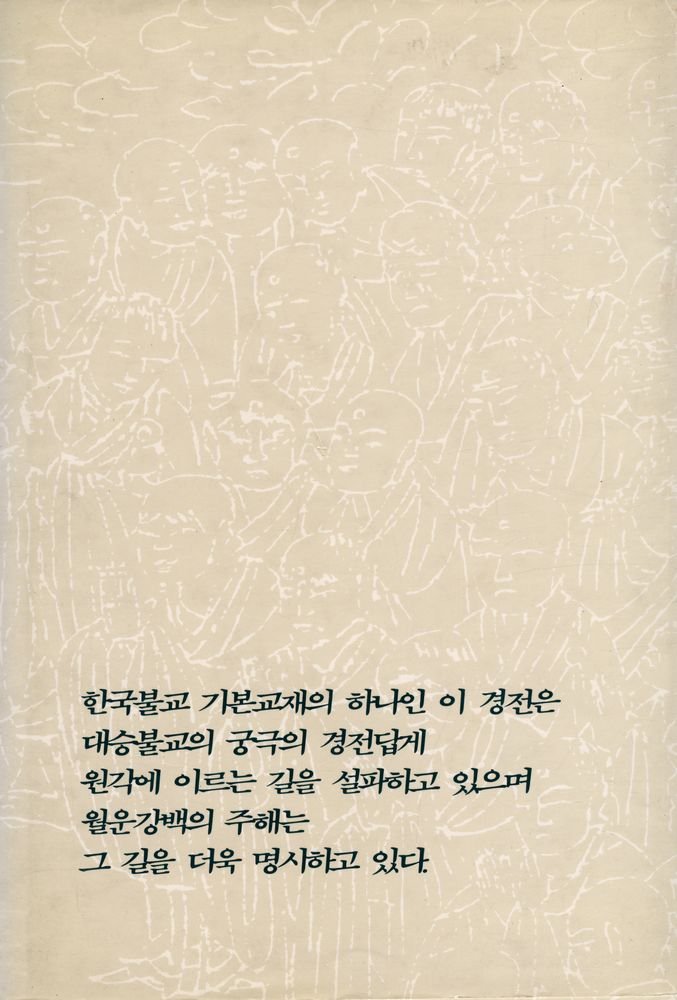 한국불교 기본교재의 하나인 이 경전은
대승불교의 궁극의 경전답게
원각에 이르는 길을 설파하고 있으며
월운강백의 주해는
그 길을 더욱 명시하고 있다.